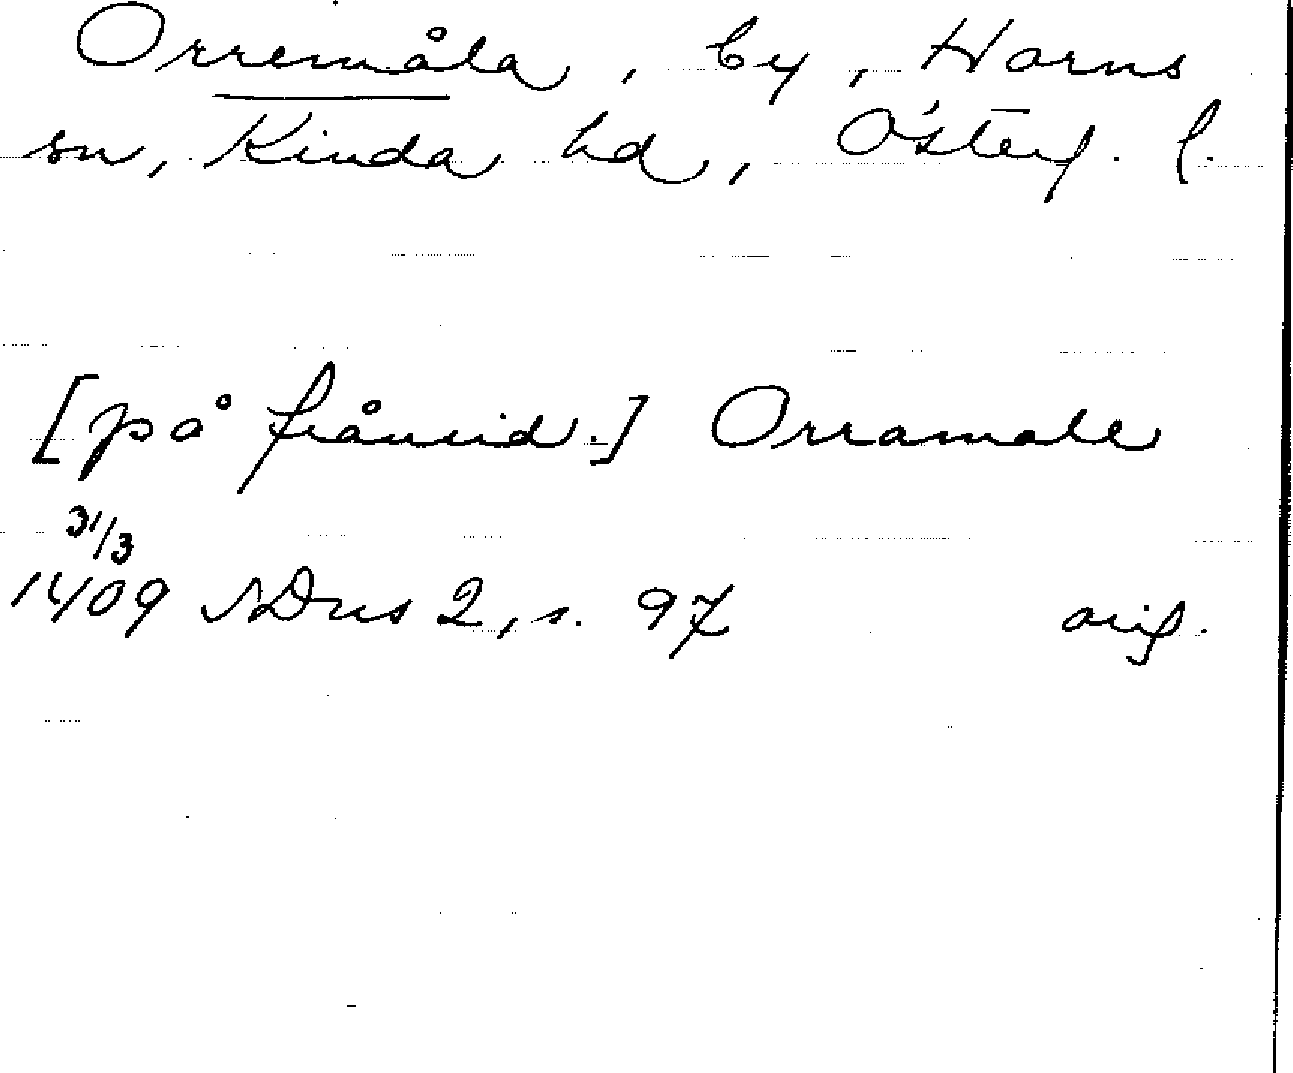 Orremåla, by, Horns
sn, Kinda hd, Österg. l.
[på frånsid.] Orramale
31/3
1409 SDns 2, s. 97 orig.